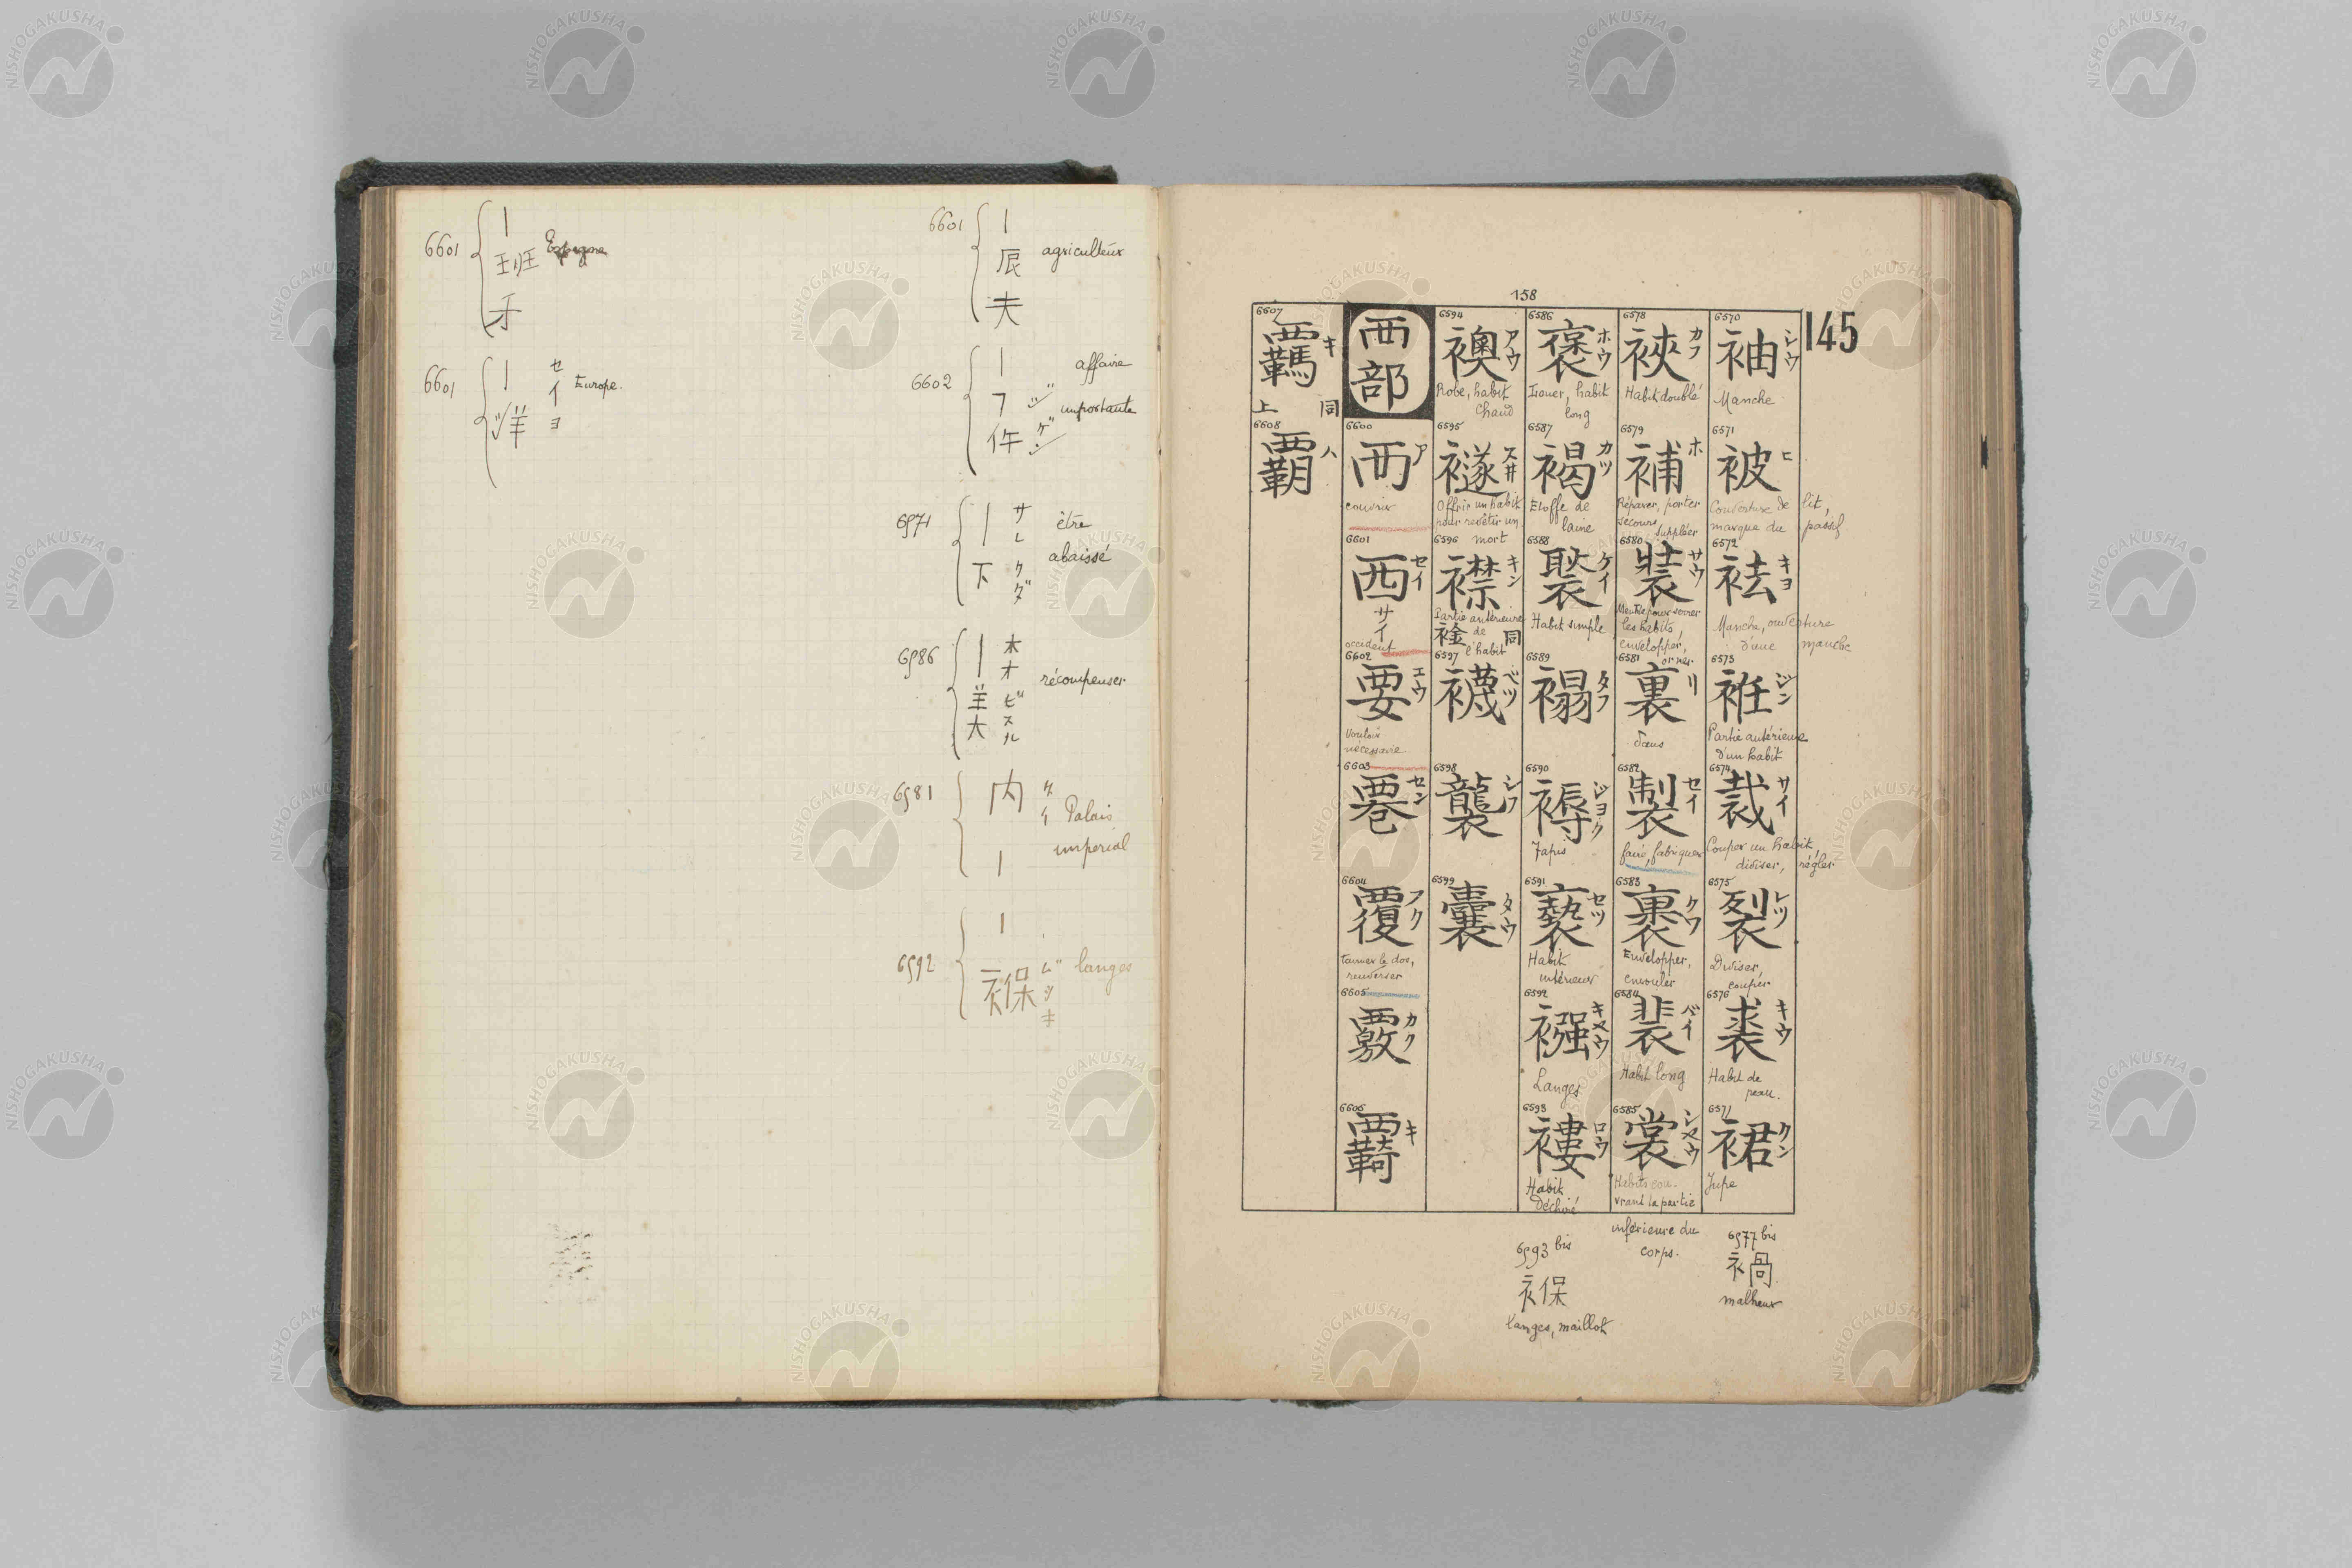 6601
|
班
牙
Espagne
6601
|
洋
セイヨ
Europe.
6601
|
辰
夫
agriculteur
6602
|
件
affaire
importante
6571
|
下
サレクダ
être
abaissé
6586
|
美
ホオビスル
récompenser
6581
内
|
Palais
imperial
6592
|
褓
ムツキ
langes
158
145
6570
袖 シウ
Manche
6571
被 ヒ
Couverture de lit,
marque du passif
6572
袪 キヨ
Manche, ouverture
d'une manche
6573
袵 ジン
Partie antérieure
d'un habit
6574
裁 サイ
Couper un habit,
diviser, régler
6575
裂 レツ
Diviser,
couper
6576
裘 キウ
Habit de
peau.
6577
裙 クン
Jupe
6577 bis
禍
malheur
6578
裌 カフ
Habit doublé
6579
補 ホ
Réparer, porter
secours
suppléer
6580
裝 サウ
Meuble pour serrer
les habits,
envelopper,
orner
6581
裏 リ
Dans
6582
製 セイ
faire, fabriquer
6583
裹 クワ
Envelopper,
enrouler
6584
裴 バイ
Habit long
6585
裳 シヤウ
Habits cou-
vrant la partie
inférieure du
corps.
6586
褒 ホウ
Louer, habit
long
6587
褐 カツ
Etoffe de
laine
6588
褧 ケイ
Habit simple
6589
褟 タフ
6590
褥 ジヨク
Tapis
6591
褻 セツ
Habit
intérieur
6592
襁 キヤウ
Langes
6593
褸 ロウ
Habit
Déchiré
6593 bis
褓
langes, maillot
6594
襖 アウ
Robe, habit
chaud
6595
襚 スヰ
Offrir un habit
pour revêtir un
mort
6596
襟 キン
Partie antérieure
de
l'habit
䘳 同
6597
襪 ベツ
6598
襲 シフ
6599
囊 タウ
襾部
6600
襾 ア
couvrir
6601
西 セイ
サイ
occident
6602
要 エウ
Vouloir
nécessaire
6603
覂 セン
6604
覆 フク
tourner le dos,
renverser
6605
覈 カク
6606
覉 キ
6607
覊 キ
同上
6608
覇 ハ